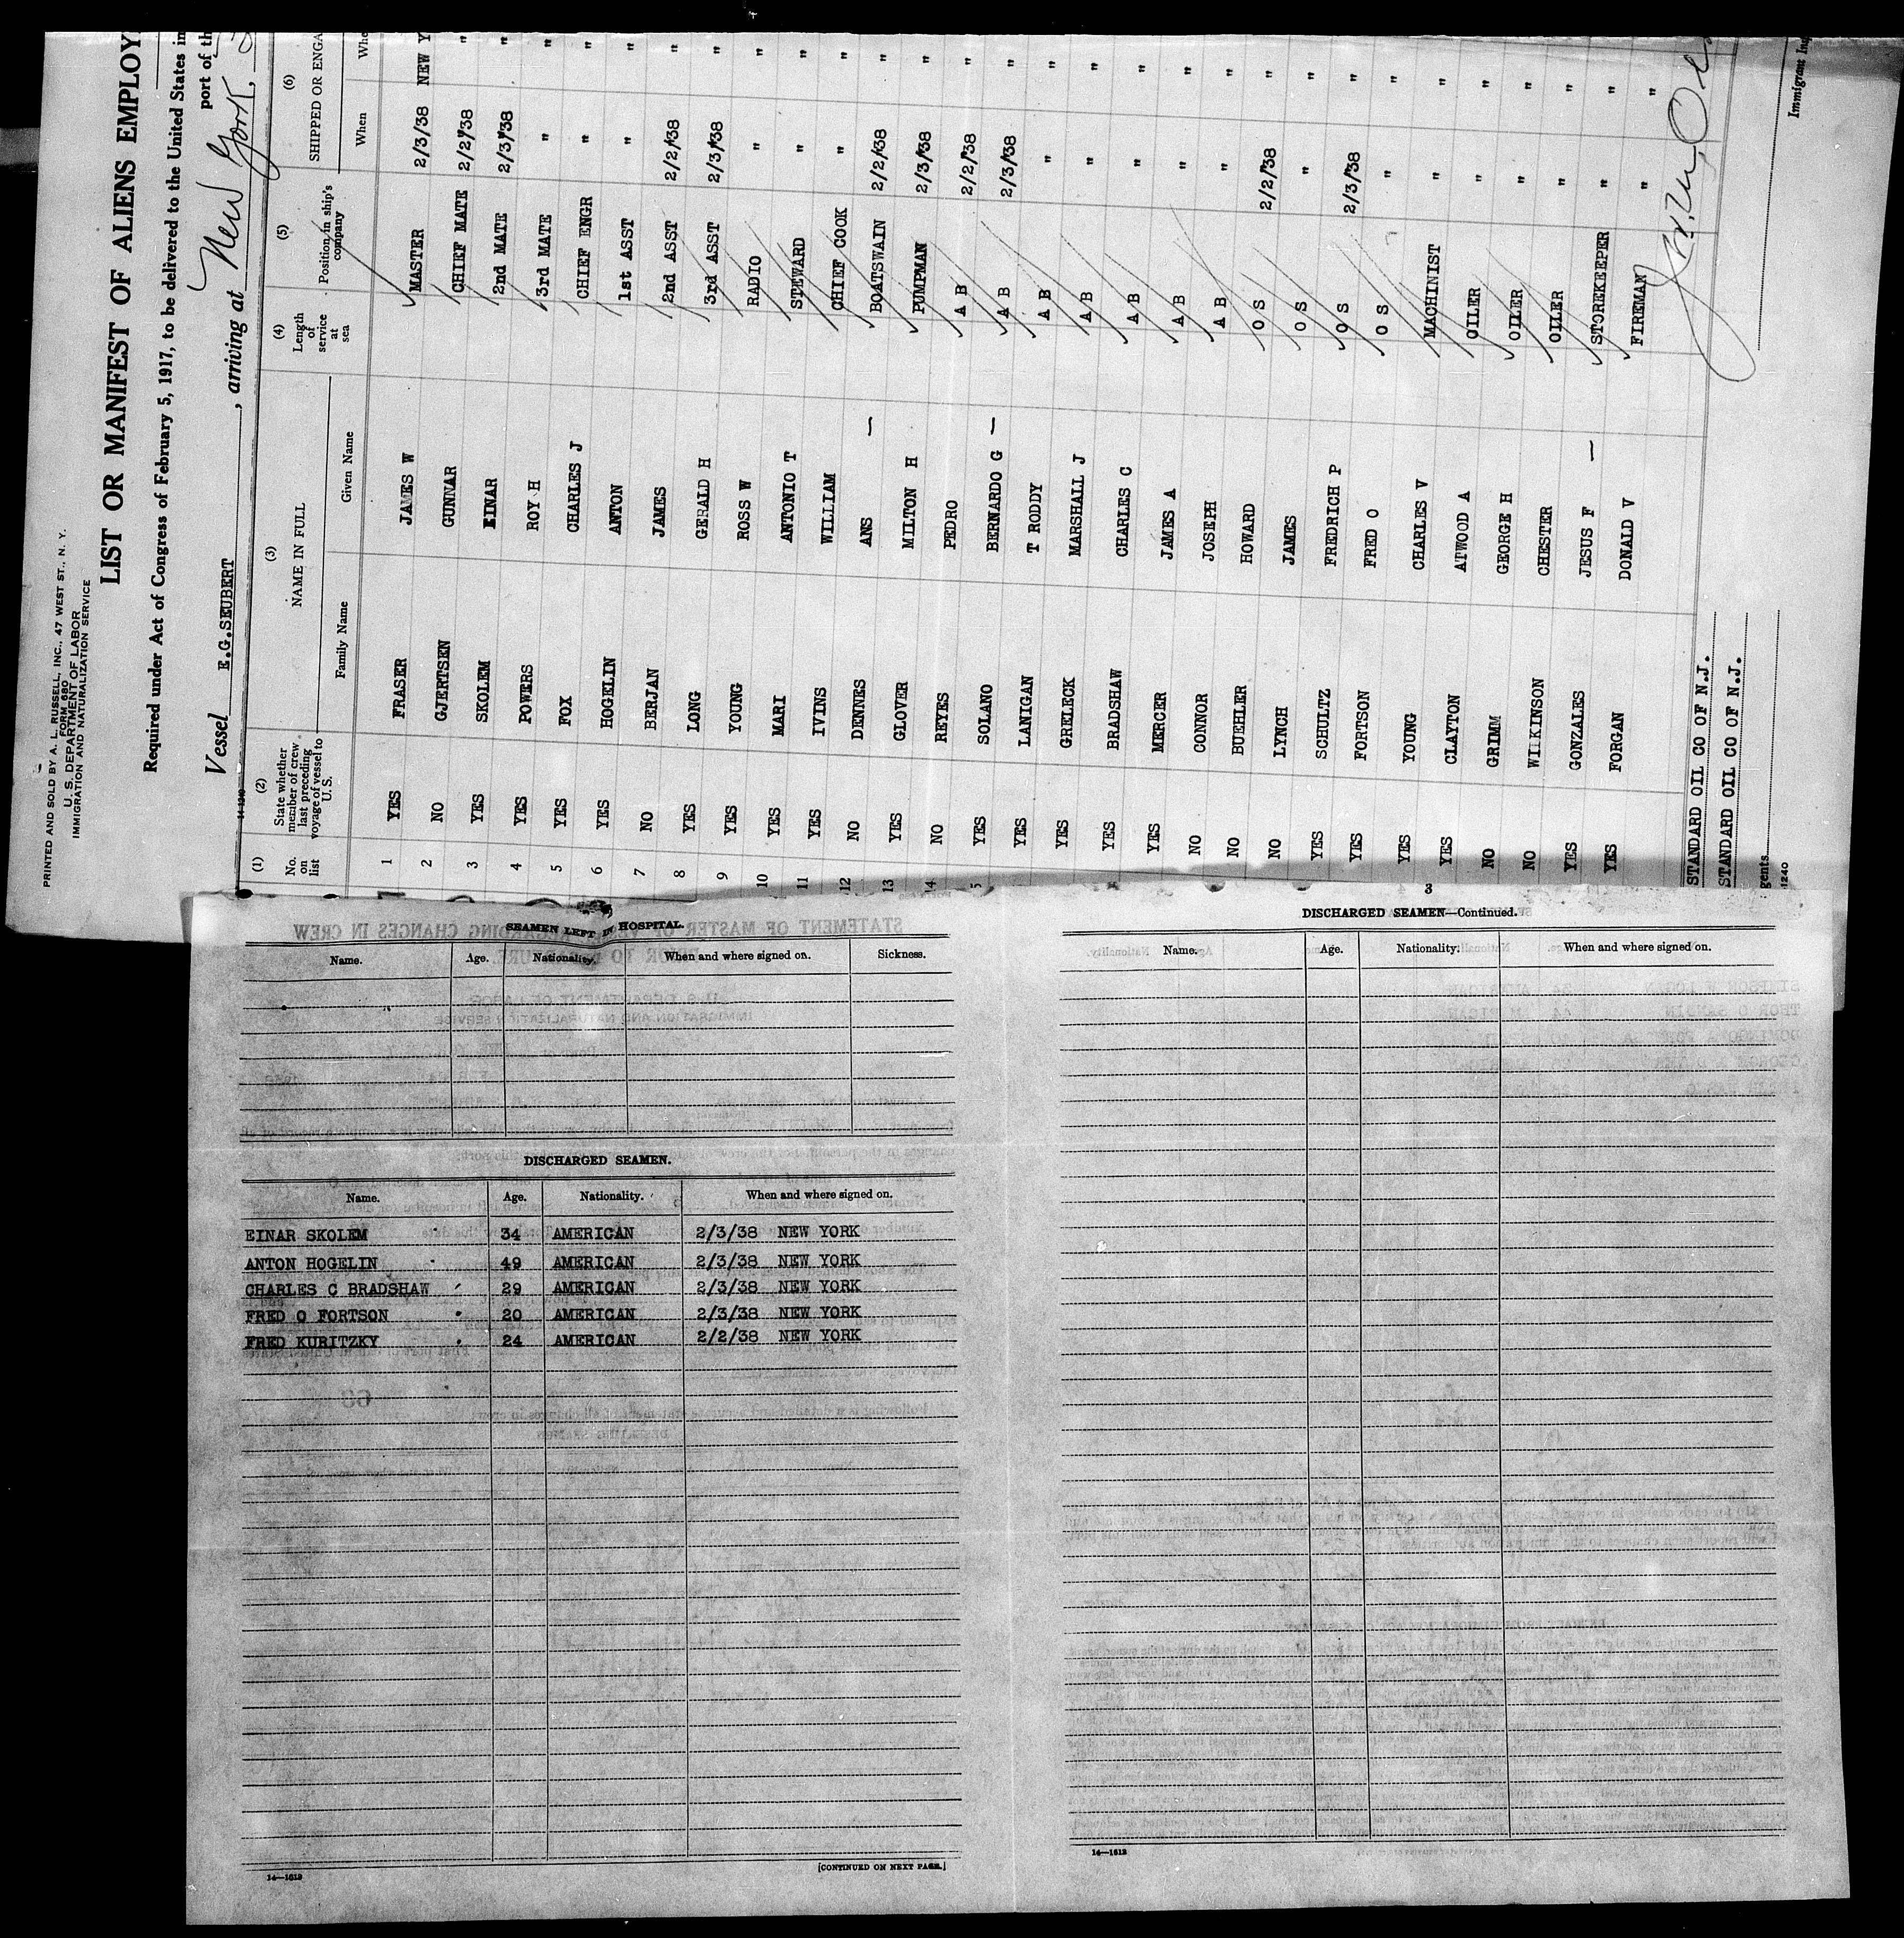 PRINTED AND SOLD BY A. L. RUSSELL, INC., 47 WEST ST., N. Y.
FORM 680
U. S. DEPARTMENT OF LABOR
IMMIGRATION AND NATURALIZATION SERVICE
LIST OR MANIFEST OF ALIENS EMPLOY
Required under Act of Congress of February 5, 1917, to be delivered to the United States in
port of th
Vessel E.G.SEUBERT, arriving at New York,
(1) (2) (3) (4) (5) (6)
No. on list State whether member of crew last preceding voyage of vessel to U. S. NAME IN FULL Length of service at sea Position in ship's company SHIPPED OR ENGA
Family Name Given Name When Whe
1 YES FRASER JAMES W MASTER 2/3/38 NEW Y
2 NO GJERTSEN GUNNAR CHIEF MATE 2/2/38 "
3 YES SKOLEM EINAR 2nd MATE 2/3/38 "
4 YES POWERS ROY H 3rd MATE " "
5 YES FOX CHARLES J CHIEF ENGR " "
6 YES HOGELIN ANTON 1st ASST " "
7 NO BERJAN JAMES 2nd ASST 2/2/38 "
8 YES LONG GERALD H 3rd ASST 2/3/38 "
9 YES YOUNG ROSS W RADIO " "
10 YES MARI ANTONIO T STEWARD " "
11 YES IVINS WILLIAM CHIEF COOK " "
12 NO DENNES ANS — BOATSWAIN 2/2/38 "
13 YES GLOVER MILTON H PUMPMAN 2/3/38 "
14 NO REYES PEDRO A B 2/2/38 "
5 YES SOLANO BERNARDO G — A B 2/3/38 "
YES LANIGAN T RODDY A B " "
YES GRELECK MARSHALL J A B " "
YES BRADSHAW CHARLES C A B " "
YES MERCER JAMES A A B " "
NO CONNOR JOSEPH A B " "
NO BUEHLER HOWARD O S " "
NO LYNCH JAMES O S 2/2/38 "
YES SCHULTZ FREDRICH P O S " "
YES FORTSON FRED O O S 2/3/38 "
YES YOUNG CHARLES V MACHINIST " "
YES CLAYTON ATWOOD A OILER " "
NO GRIMM GEORGE H OILER " "
NO WILKINSON CHESTER OILER " "
YES GONZALES JESUS F — STOREKEEPER " "
YES FORGAN DONALD V FIREMAN " "
STANDARD OIL CO OF N.J.
STANDARD OIL CO OF N.J.
gents
1240
Immigrant Insp
SEAMEN LEFT IN HOSPITAL.
Name. Age. Nationality. When and where signed on. Sickness.
DISCHARGED SEAMEN.
Name. Age. Nationality. When and where signed on.
EINAR SKOLEM 34 AMERICAN 2/3/38 NEW YORK
ANTON HOGELIN 49 AMERICAN 2/3/38 NEW YORK
CHARLES C BRADSHAW 29 AMERICAN 2/3/38 NEW YORK
FRED O FORTSON 20 AMERICAN 2/3/38 NEW YORK
FRED KURITZKY 24 AMERICAN 2/2/38 NEW YORK
14—1613
[CONTINUED ON NEXT PAGE.]
DISCHARGED SEAMEN—Continued.
Name. Age. Nationality. When and where signed on.
14—1613